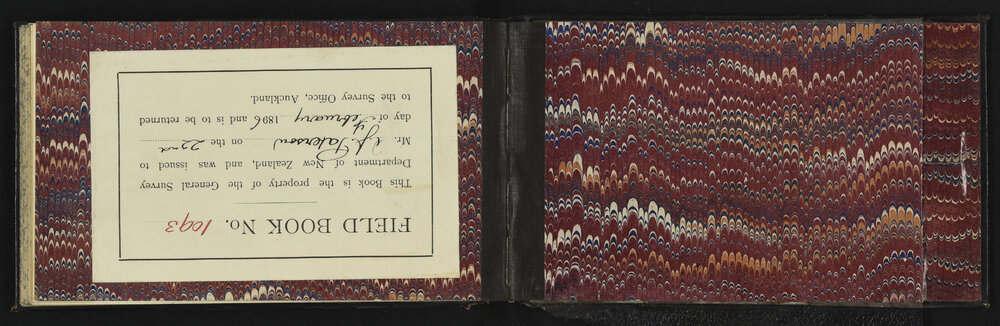 FIELD BOOK No. 1093
This Book is the property of the General Survey
Department of New Zealand, and was issued to
Mr. Paterson on the 22nd
day of February 1896 and is to be returned
to the Survey Office, Auckland.